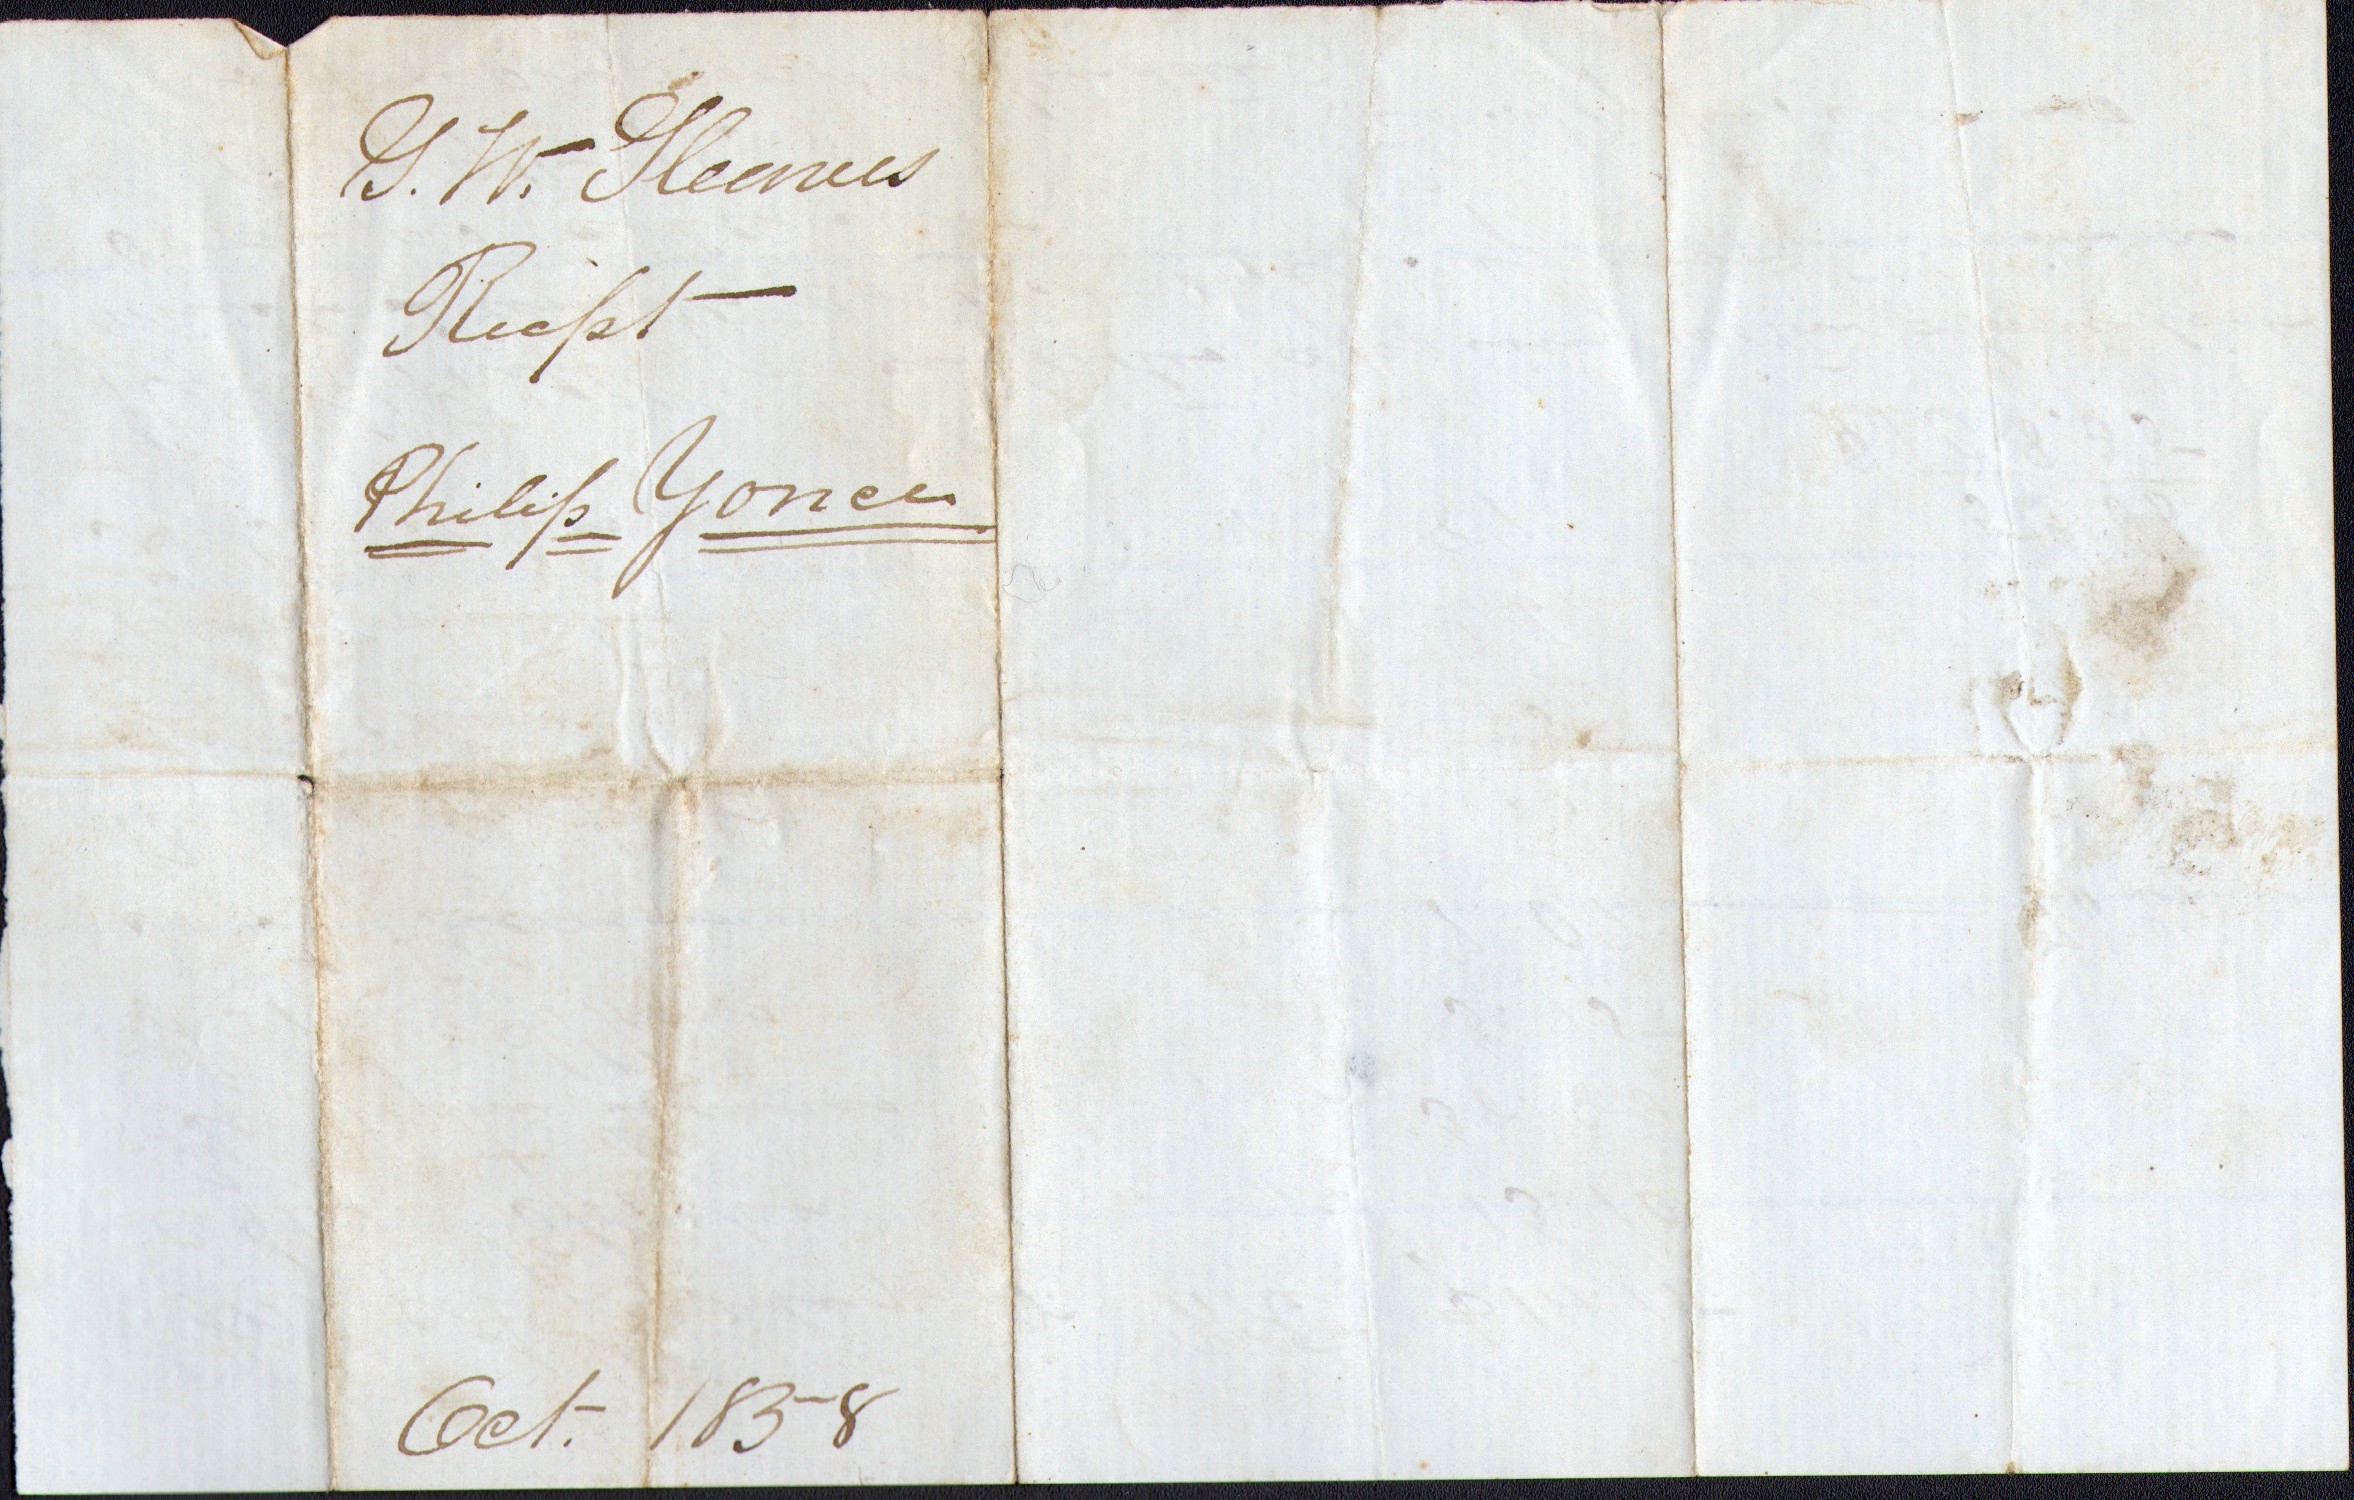 G. W. Gleaves
Recipt
Philip Yonce
Oct. 1858